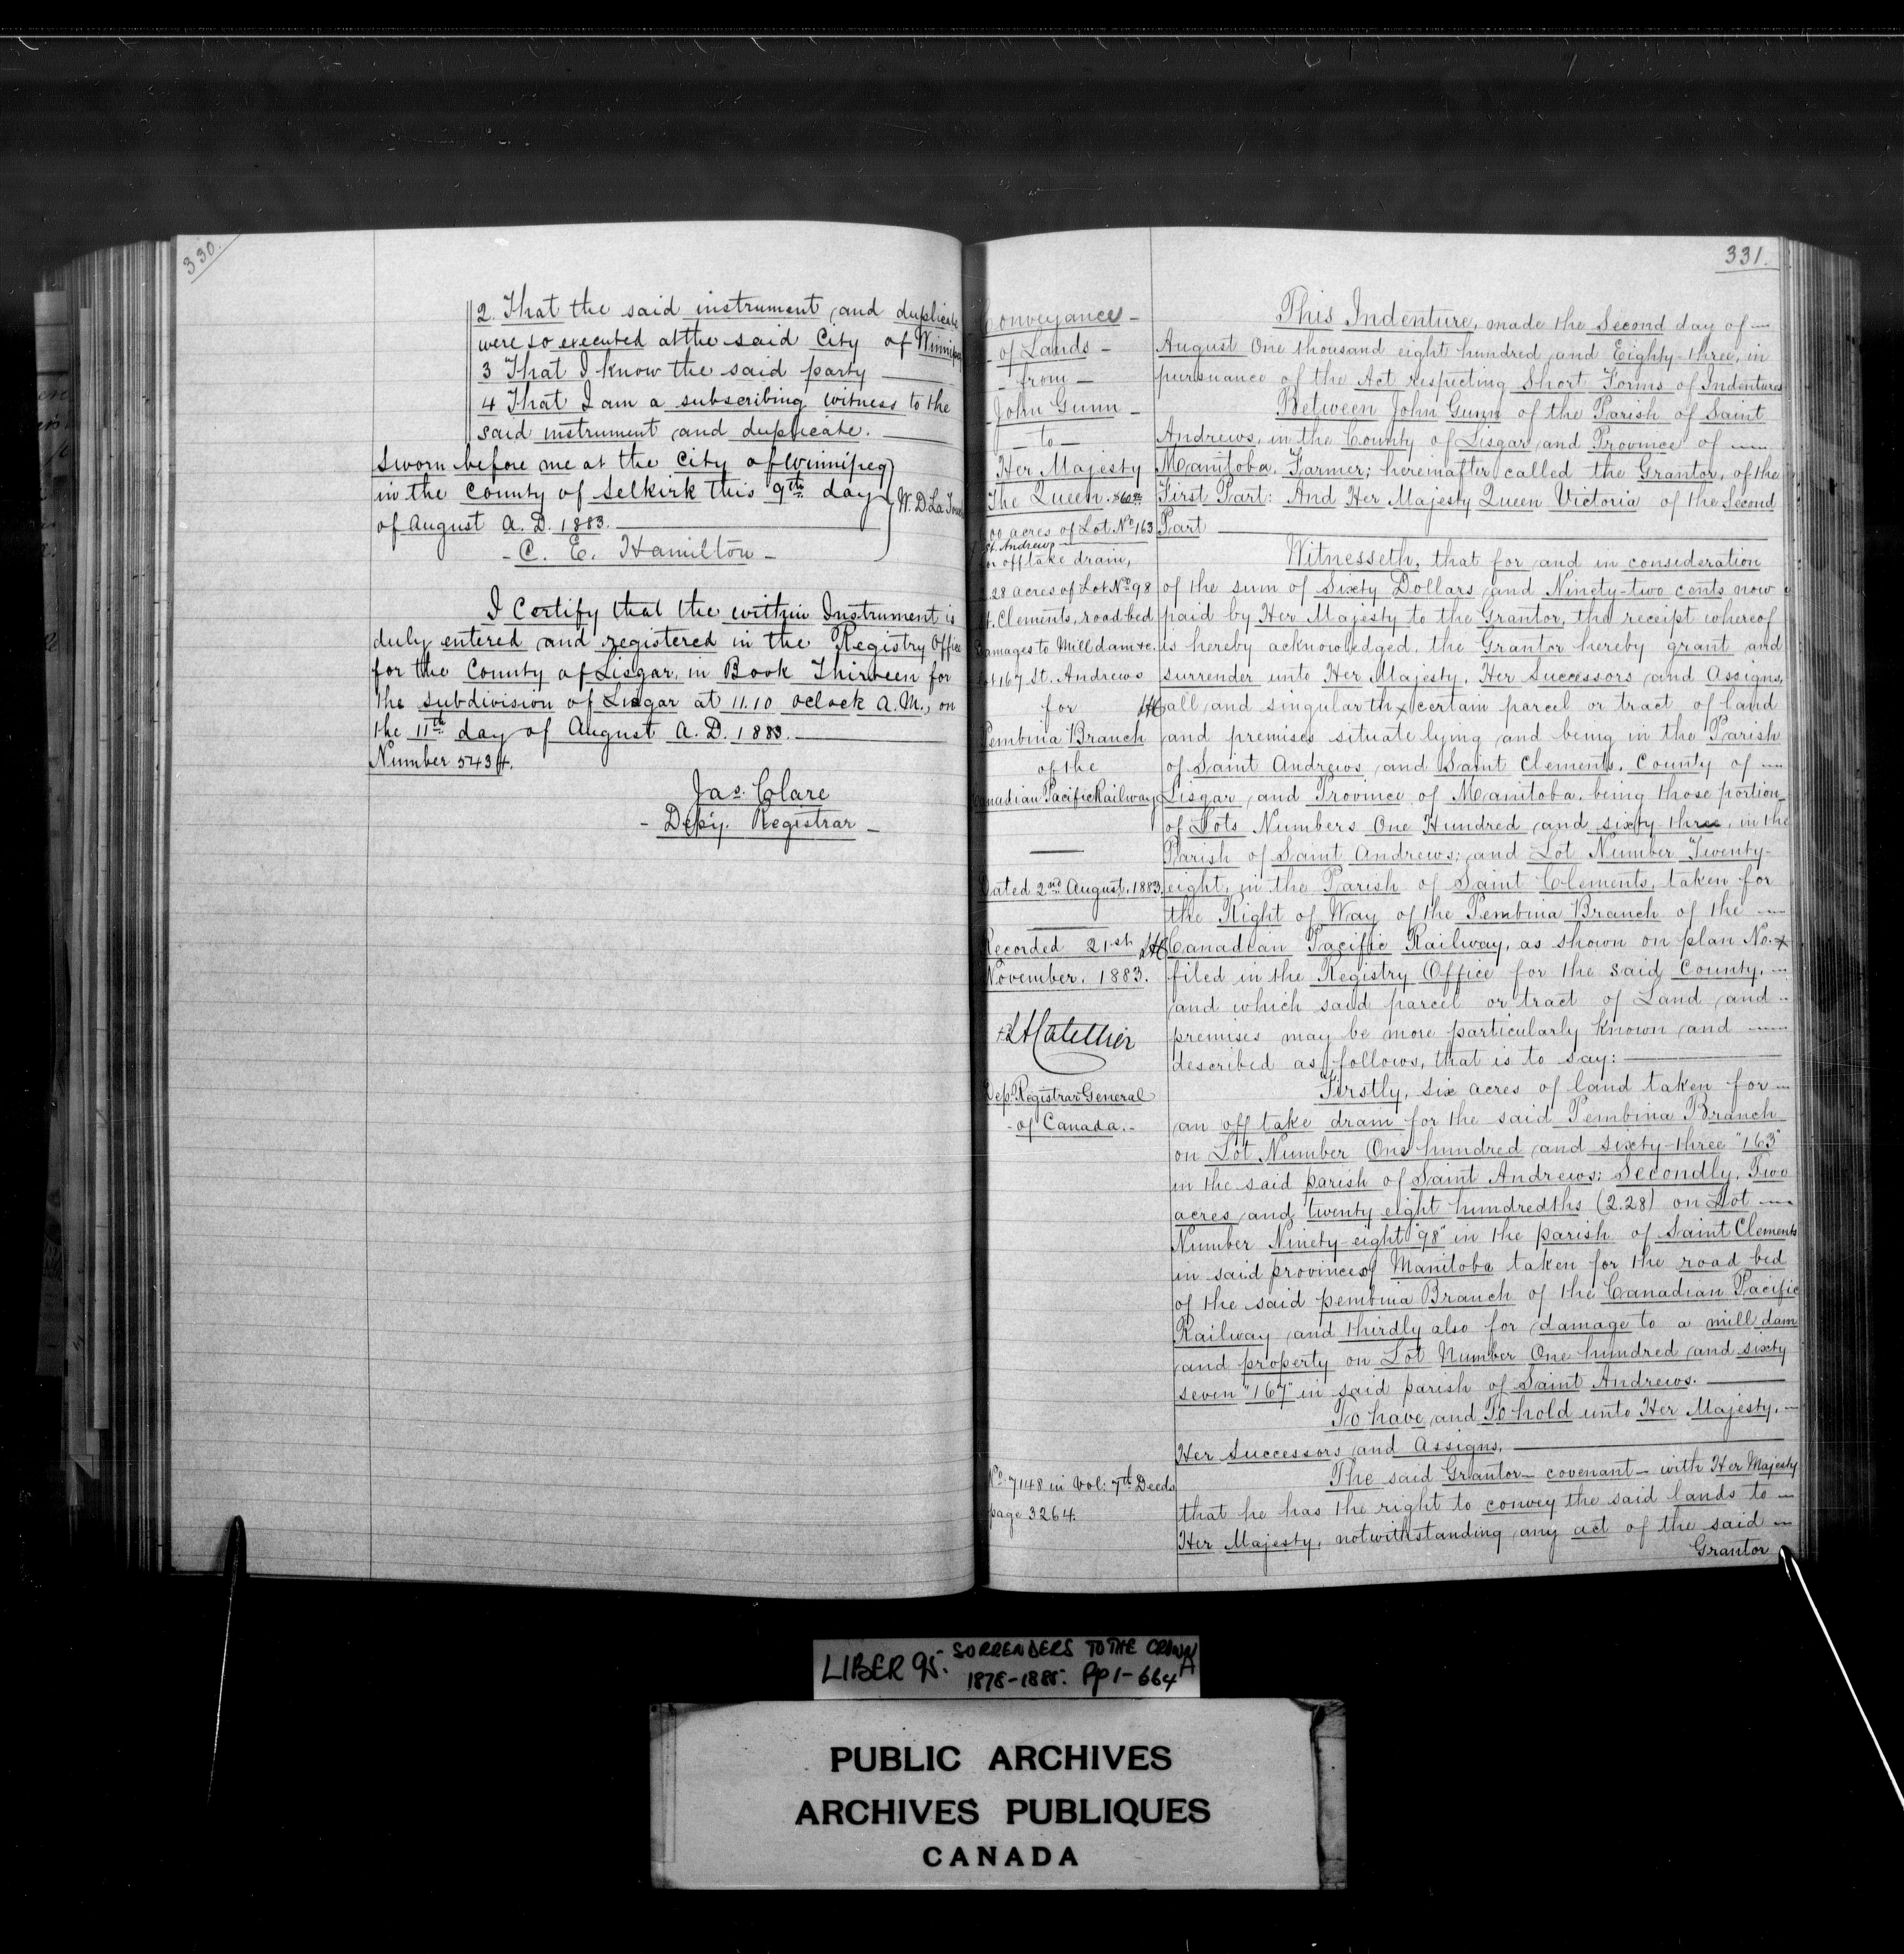 330.
2. That the said instrument and duplicate
were so executed at the said City of Winnipeg
3 That I know the said party
4 That I am a subscribing witness to the
said instrument and duplicate.
Sworn before me at the City of Winnipeg
in the County of Selkirk this 9th day
of August A.D. 1883.
W. D. La
- C. E. Hamilton -
I Certify that the within Instrument is
duly entered and registered in the Registry Office
for the County of Lisgar, in Book Thirteen for
the subdivision of Lisgar at 11.10 oclock A.M., on
the 11th day of August A.D. 1883.
Number 5434.
Jas. Clare
- Depy. Registrar -
331.
Conveyance -
- of Lands -
- from -
John Gunn -
- to -
Her Majesty
The Queen.
acres of Lot No 163
St. Andrews
for off take drain,
2.28 acres of Lot No 98
St. Clements, road bed
Damages to Milldam &c.
Lot 167 St. Andrews
for
Pembina Branch
of the
Canadian Pacific Railway
Dated 2nd August, 1883.
Recorded 21st
November. 1883.
Dep. Registrar General
- of Canada. -
No 7148 in Vol: 7th Deeds
page 3264.
This Indenture, made the Second day of
August One thousand eight hundred and Eighty-three, in
pursuance of the Act respecting Short Forms of Indentures
Between John Gunn of the Parish of Saint
Andrews, in the County of Lisgar and Province of
Manitoba. Farmer; hereinafter called the Grantor, of the
First Part: And Her Majesty Queen Victoria of the Second
Part
Witnesseth, that for and in consideration
of the sum of Sixty Dollars and Ninety-two cents now
paid by Her Majesty to the Grantor, the receipt whereof
is hereby acknowledged, the Grantor hereby grant and
surrender unto Her Majesty, Her Successors and Assigns,
all and singular th x certain parcel or tract of land
and premises situate lying and being in the Parish
of Saint Andrews and Saint Clements, County of
Lisgar and Province of Manitoba, being those portion
of Lots Numbers One Hundred and sixty-three, in the
Parish of Saint Andrews; and Lot Number Twenty-
eight, in the Parish of Saint Clements, taken for
the Right of Way of the Pembina Branch of the
Canadian Pacific Railway, as shown on plan No. x
filed in the Registry Office for the said County,
and which said parcel or tract of Land and
premises may be more particularly known and
described as follows, that is to say:
Firstly, six acres of land taken for
an off take drain for the said Pembina Branch
on Lot Number One hundred and sixty-three "163"
in the said parish of Saint Andrews; Secondly, Two
acres and twenty eight hundredths (2.28) on Lot
Number Ninety-eight "98" in the parish of Saint Clements
in said province of Manitoba taken for the road bed
of the said pembina Branch of the Canadian Pacific
Railway and thirdly also for damage to a mill dam
and property on Lot Number One hundred and sixty
seven "167" in said parish of Saint Andrews.
To have and To hold unto Her Majesty,
Her Successors and Assigns.
The said Grantor - covenant - with Her Majesty
that he has the right to convey the said lands to
Her Majesty, notwithstanding any act of the said
Grantor
LIBER 95. SURRENDERS TO THE CROWN
1878-1885. Pp 1-664A
PUBLIC ARCHIVES
ARCHIVES PUBLIQUES
CANADA